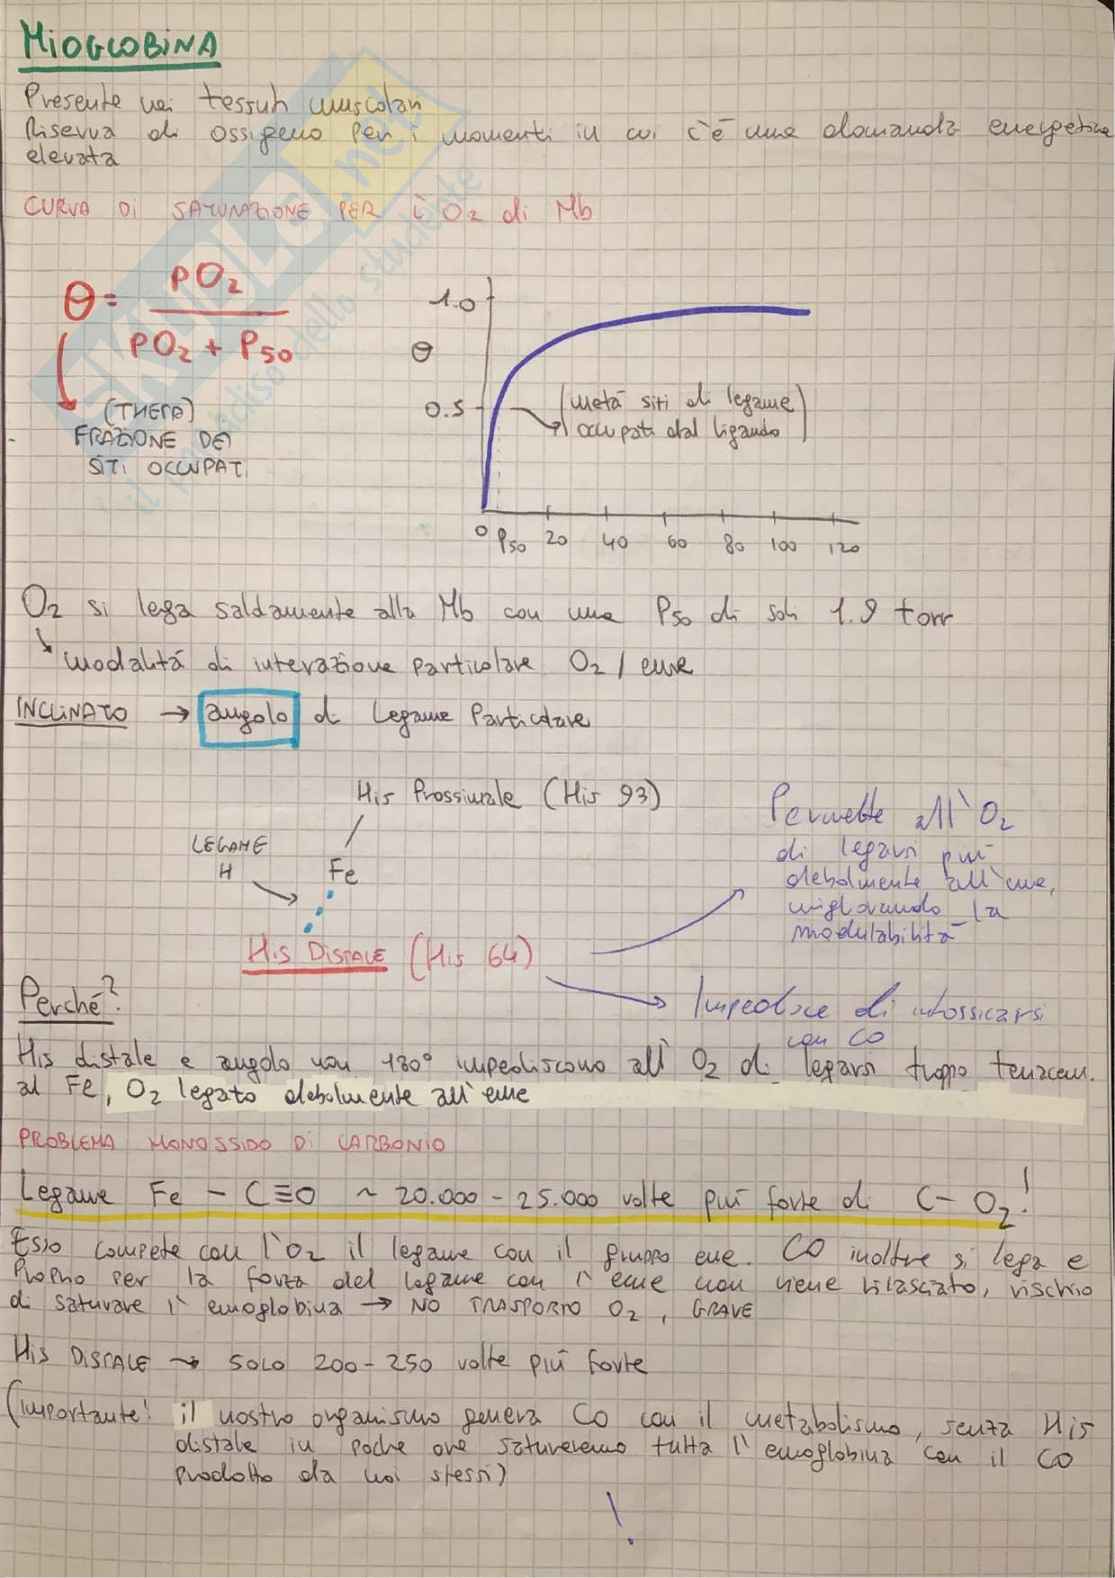 MIOGLOBINA
Presente nei tessuti muscolari
Riserva di ossigeno per i momenti in cui c'è una domanda energetica
elevata
CURVA DI SATURAZIONE PER L'O2 di Mb
θ = pO2 / (pO2 + P50)
(THETA)
FRAZIONE DEI
SITI OCCUPATI
1.0
θ
0.5
(metá siti di legame
occupati dal ligando)
0 P50 20 40 60 80 100 120
O2 si lega saldamente alla Mb con una P50 di soli 1.9 torr
modalitá di interazione particolare O2 / eme
INCLINATO → angolo di legame particolare
His Prossimale (His 93)
LEGAME
H
Fe
His DISTALE (His 64)
Permette all'O2
di legarsi piú
debolmente all'eme,
migliorando la
modulabilitá
Impedisce di intossicarsi
con CO
Perché?
His distale e angolo non 180° impediscono all'O2 di legarsi troppo tenacem.
al Fe, O2 legato debolmente all'eme
PROBLEMA MONOSSIDO DI CARBONIO
Legame Fe - C≡O ~ 20.000 - 25.000 volte piú forte di C - O2!
Esso compete con l'O2 il legame con il gruppo eme. CO inoltre si lega e
proprio per la forza del legame con l'eme non viene rilasciato, rischio
di saturare l'emoglobina → NO TRASPORTO O2, GRAVE
His DISTALE → SOLO 200 - 250 volte piú forte
(importante! il nostro organismo genera CO con il metabolismo, senza His
distale in poche ore satureremo tutta l'emoglobina con il CO
prodotto da noi stessi)
!
SKUOLA.net
il paradiso dello studente